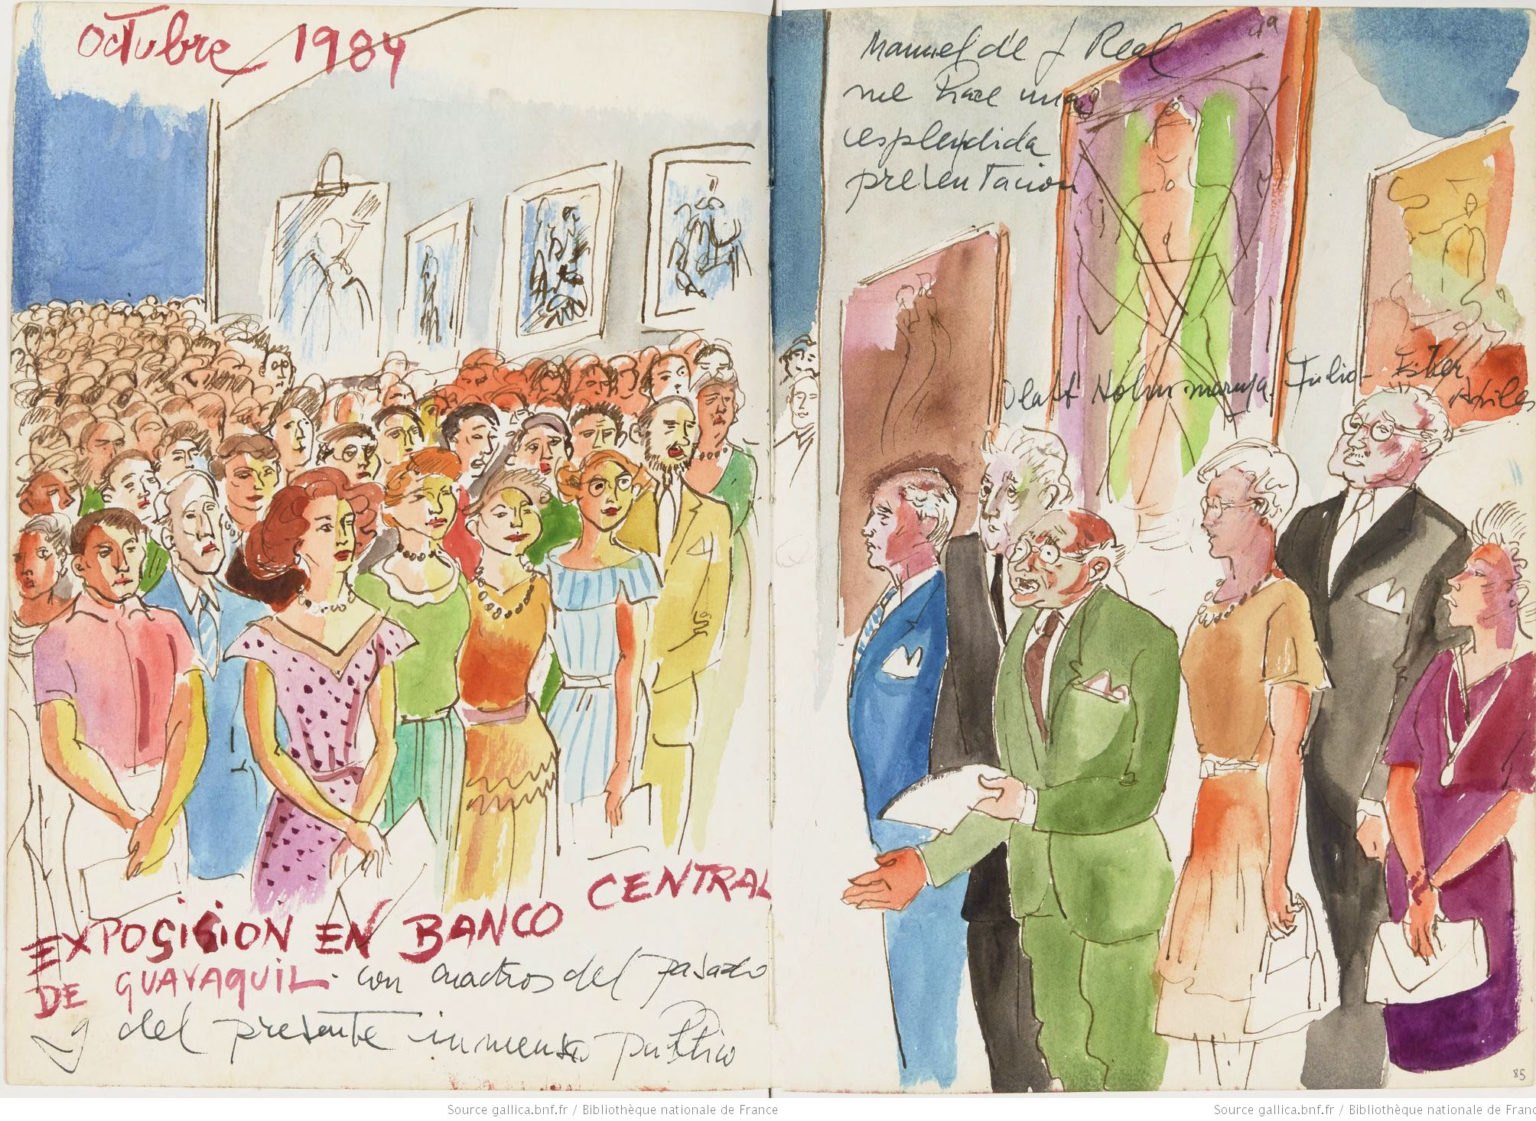 Octubre 1984
EXPOSICION EN BANCO CENTRAL
DE GUAYAQUIL. con cuadros del pasado
y del presente inmenso publico
Manuel de J Real
me hace una
esplendida
presentacion
Olaff Holm maruja Julio Ester
Aviles
85
Source gallica.bnf.fr / Bibliothèque nationale de France
Source gallica.bnf.fr / Bibliothèque nationale de Franc